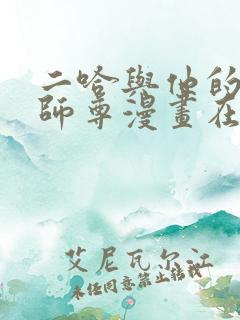 二哈與他的
師尊漫畫在
艾尼瓦尔江
未经同意禁止转载